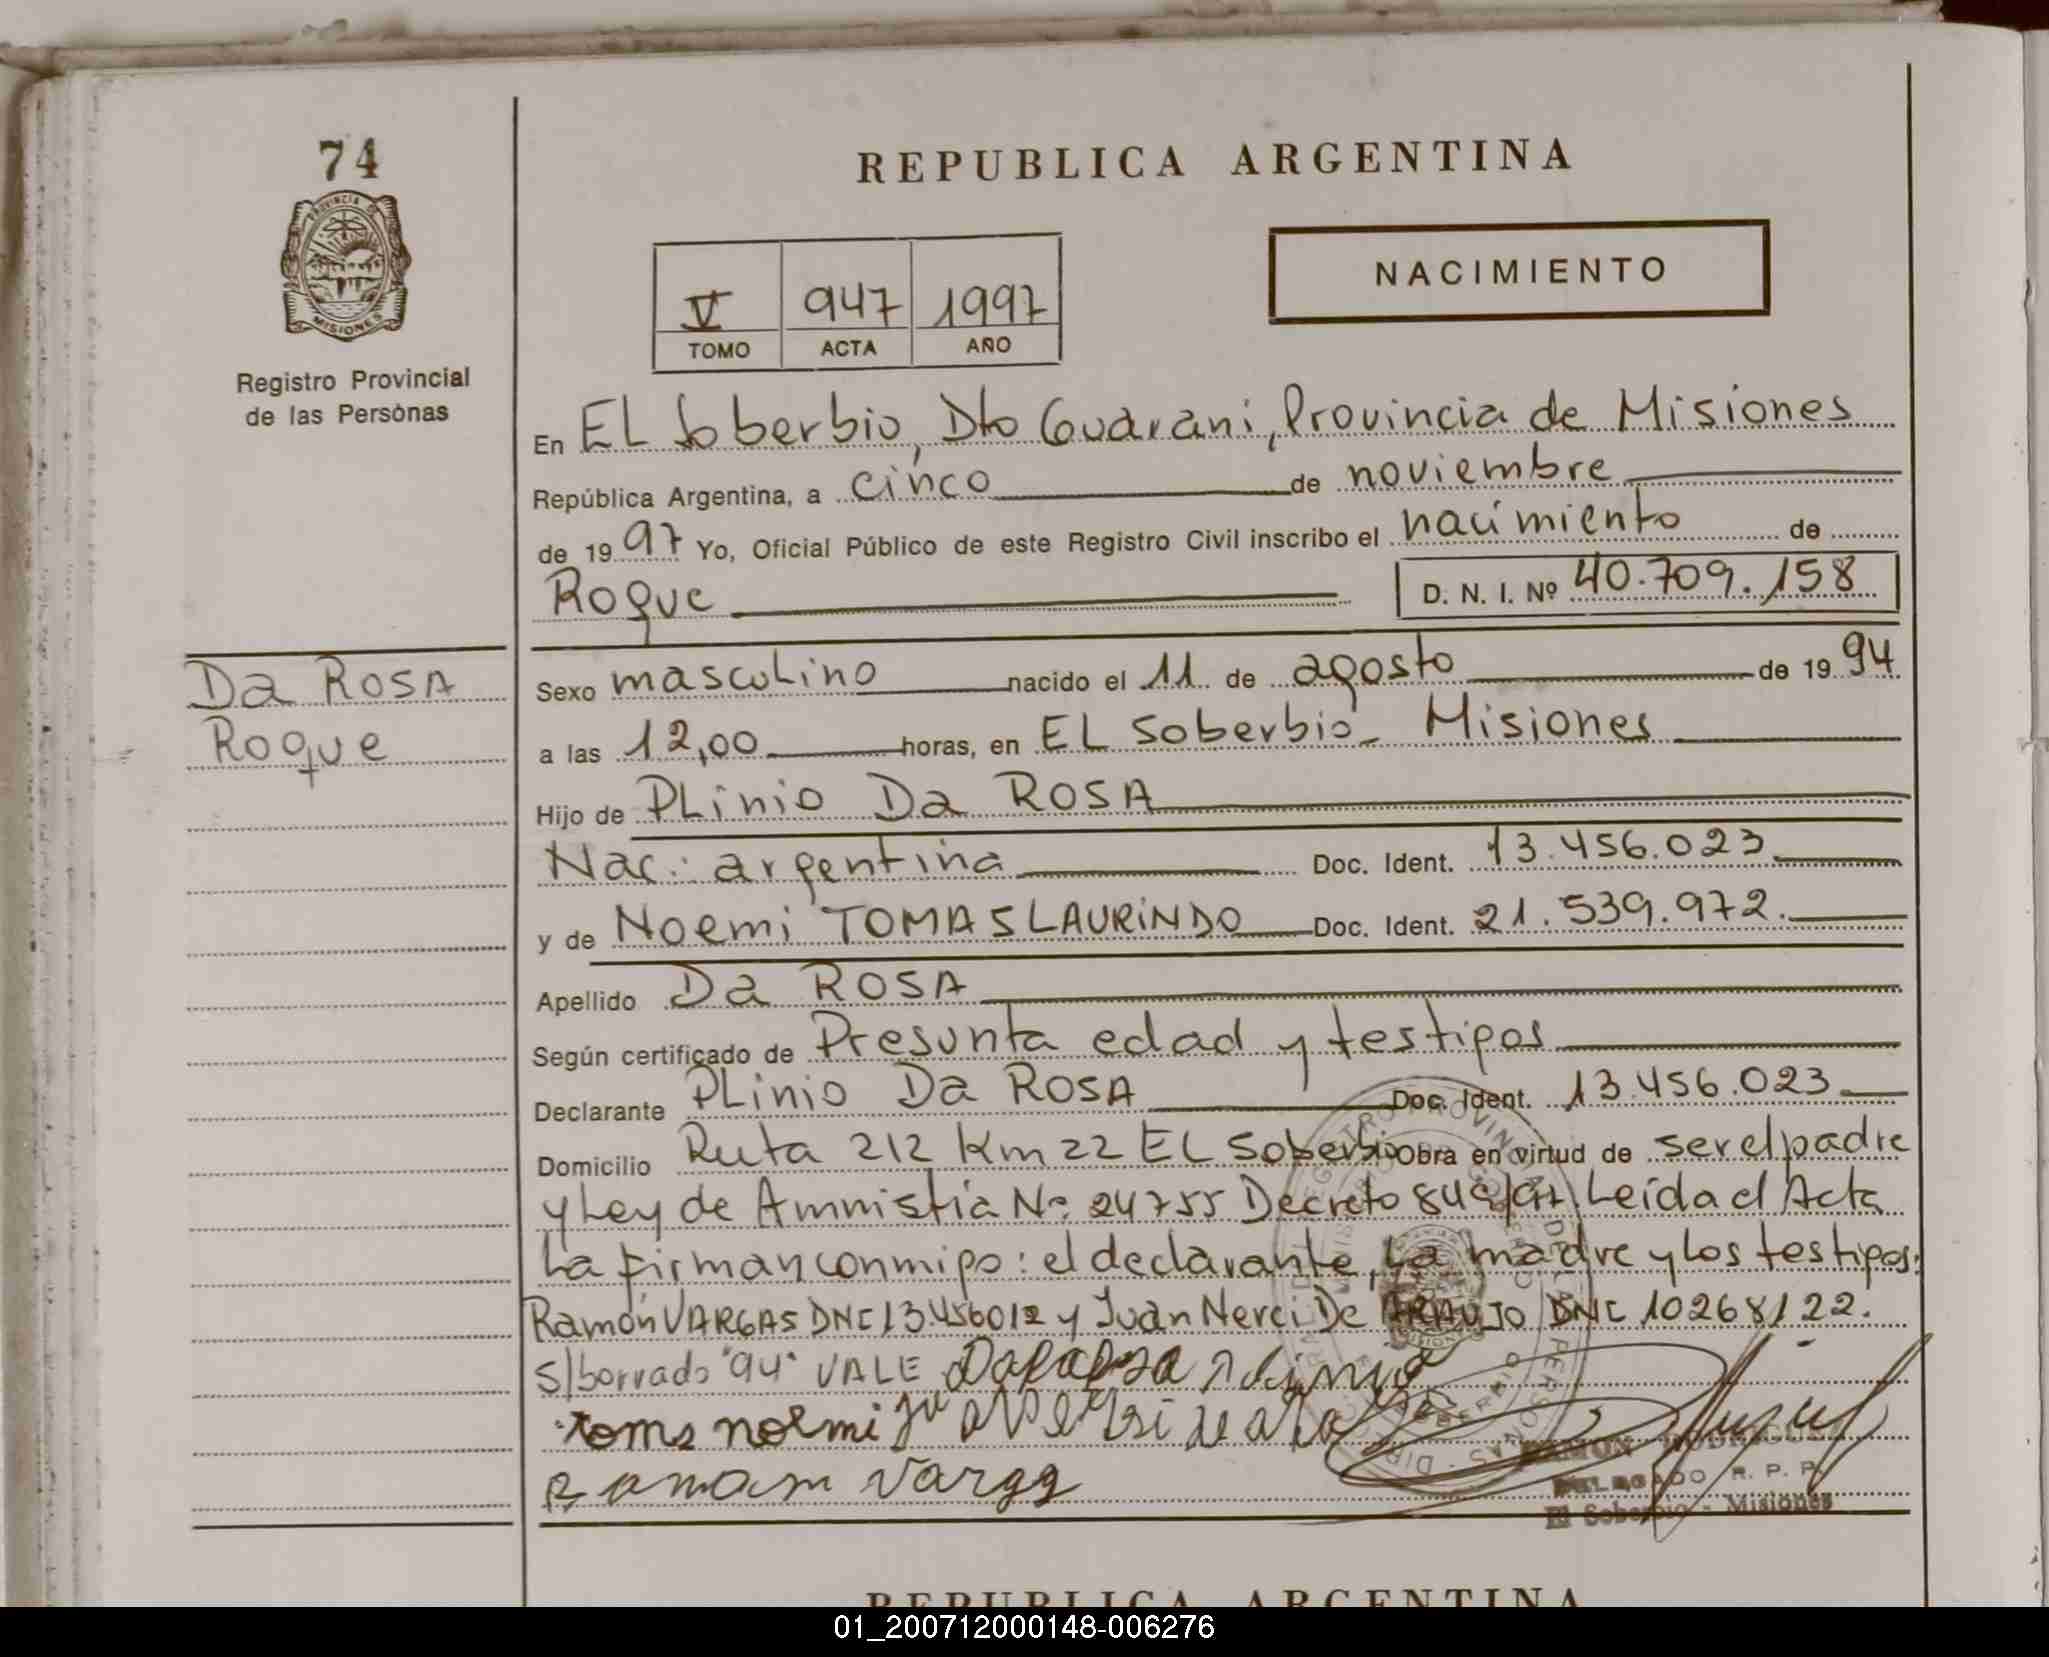 74
PROVINCIA DE
MISIONES
Registro Provincial
de las Personas
REPUBLICA ARGENTINA
NACIMIENTO
V 947 1997
TOMO ACTA AÑO
En EL Soberbio, Dto Guarani, Provincia de Misiones
República Argentina, a cinco de noviembre
de 1997 Yo, Oficial Público de este Registro Civil inscribo el nacimiento de
Roque D. N. I. Nº 40.709.158
Da ROSA
Roque
Sexo masculino nacido el 11 de agosto de 1994
a las 12,00 horas, en EL Soberbio - Misiones
Hijo de PLinio Da ROSA
Nac: argentina Doc. Ident. 13.456.023
y de Noemi TOMAS LAURINDO Doc. Ident. 21.539.972.
Apellido Da ROSA
Según certificado de Presunta edad y testigos
Declarante PLinio Da ROSA Doc. Ident. 13.456.023
Domicilio Ruta 212 Km 22 EL Soberbio Obra en virtud de ser el padre
y Ley de Amnistia Nº 24755 Decreto 849/97. Leída el Acta
La firman conmigo: el declarante, La madre y Los testigos:
Ramón VARGAS DNI 13.456012 y Juan Nerci De ARAUJO DNI 10268122.
S/borrado "94" VALE Da Rosa Plinio
toms noemi
Vargg
RAMON RODRIGUEZ
DELEGADO R. P. P.
El Soberbio - Misiones
REPUBLICA ARGENTINA
01_200712000148-006276